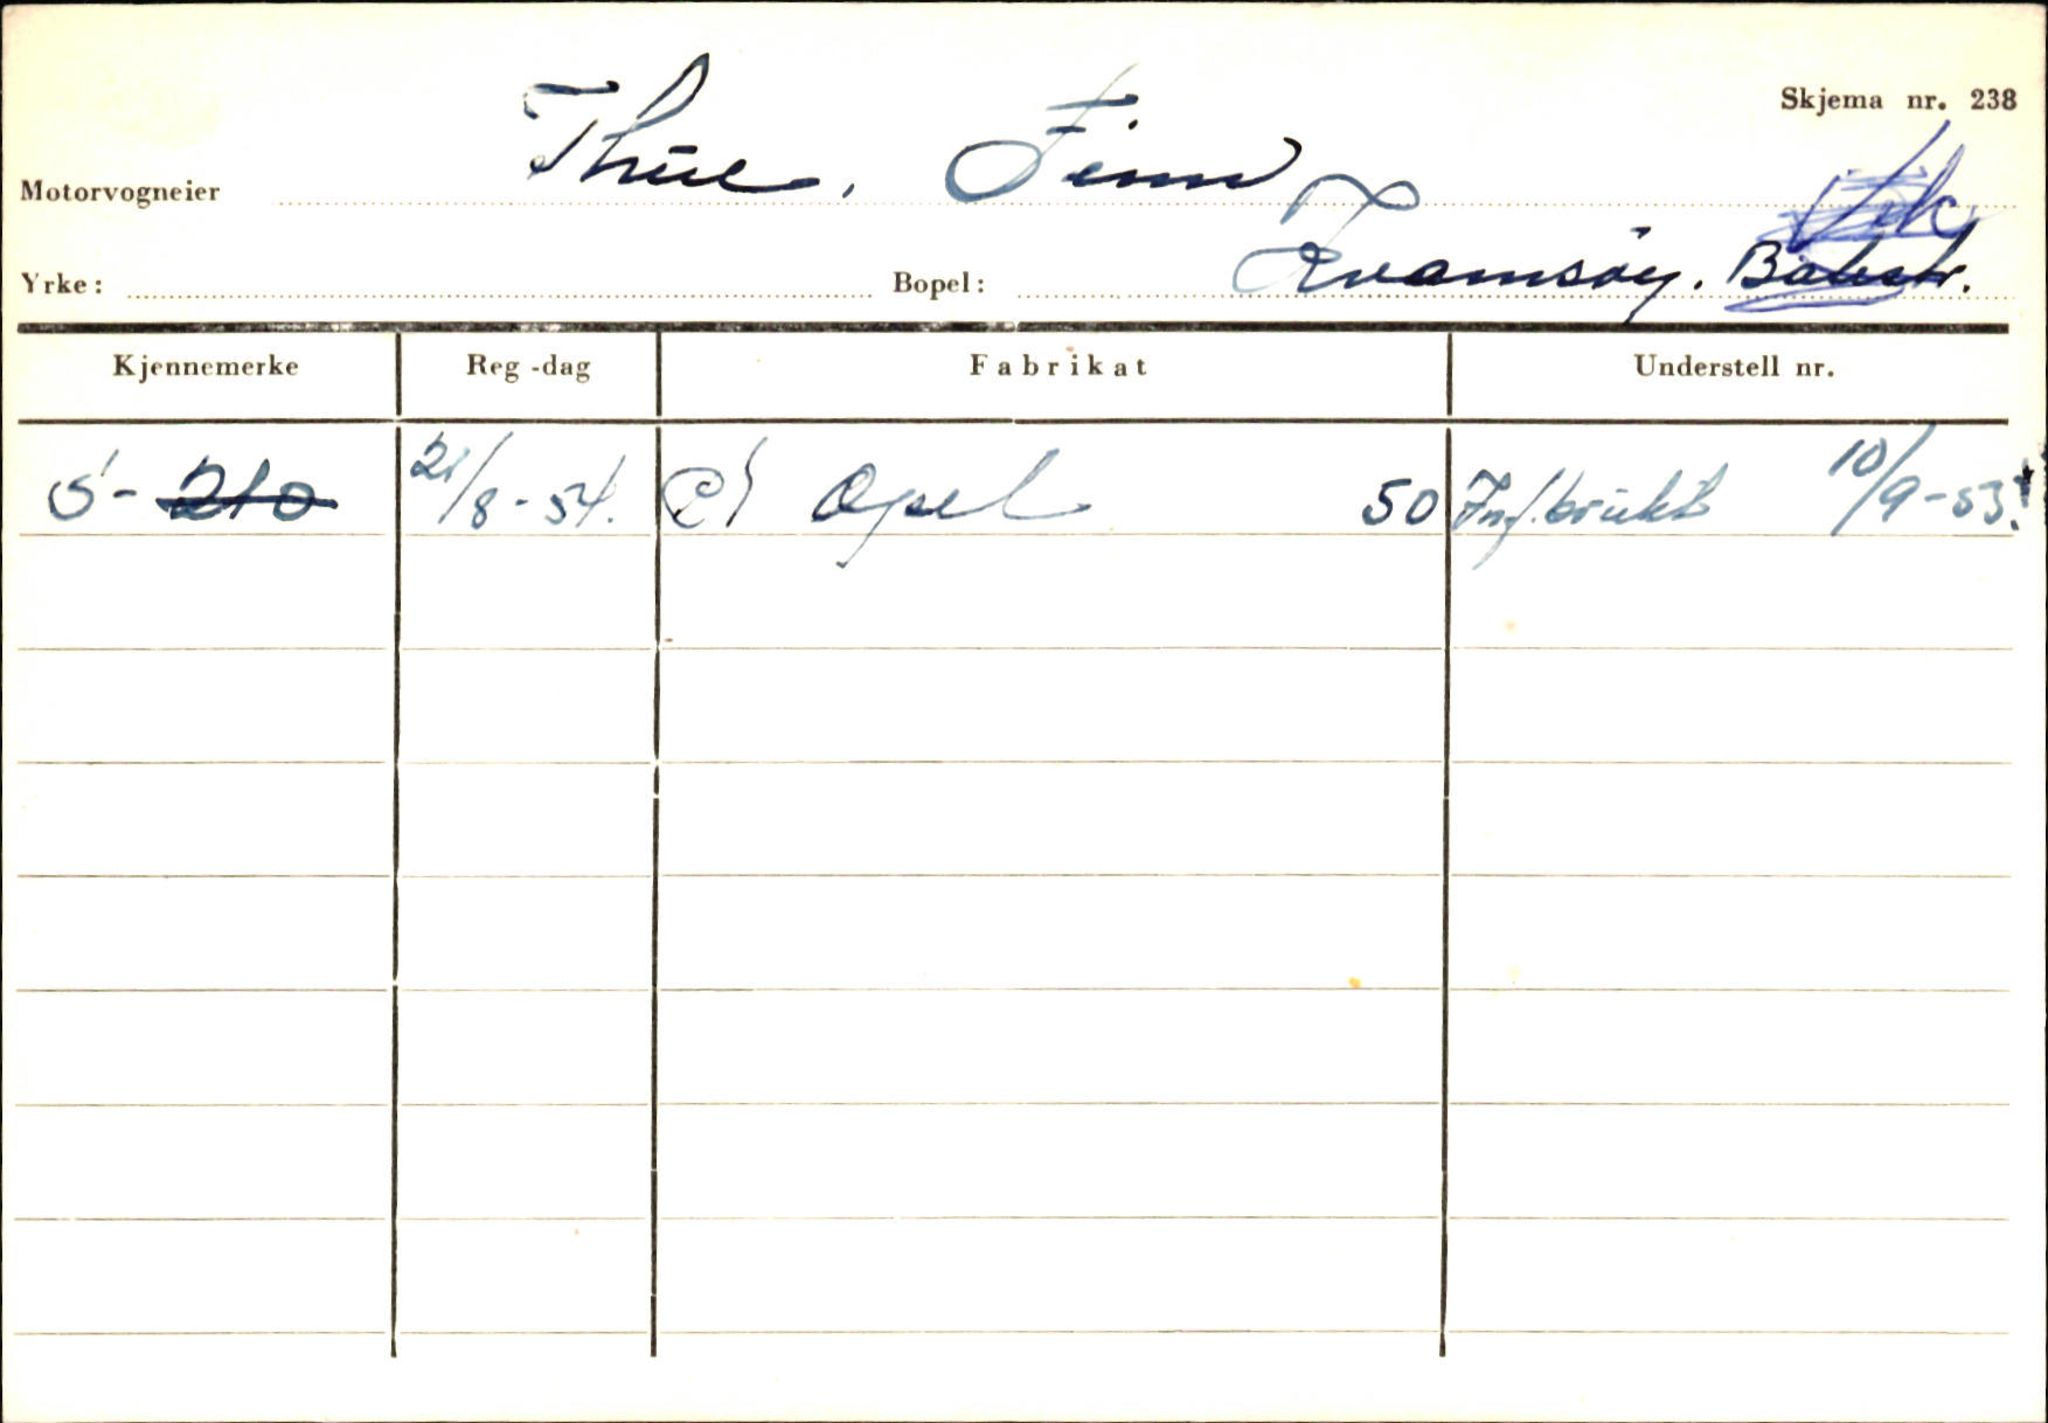 Skjema nr. 238
Motorvogneier Thue, Finn
Vik
Yrke: Bopel: Kvamsøy. Balestr.
Kjennemerke Reg-dag Fabrikat Understell nr.
S-210 21/8-54. P1 Opel 50 Inf. brukt 10/9-53.